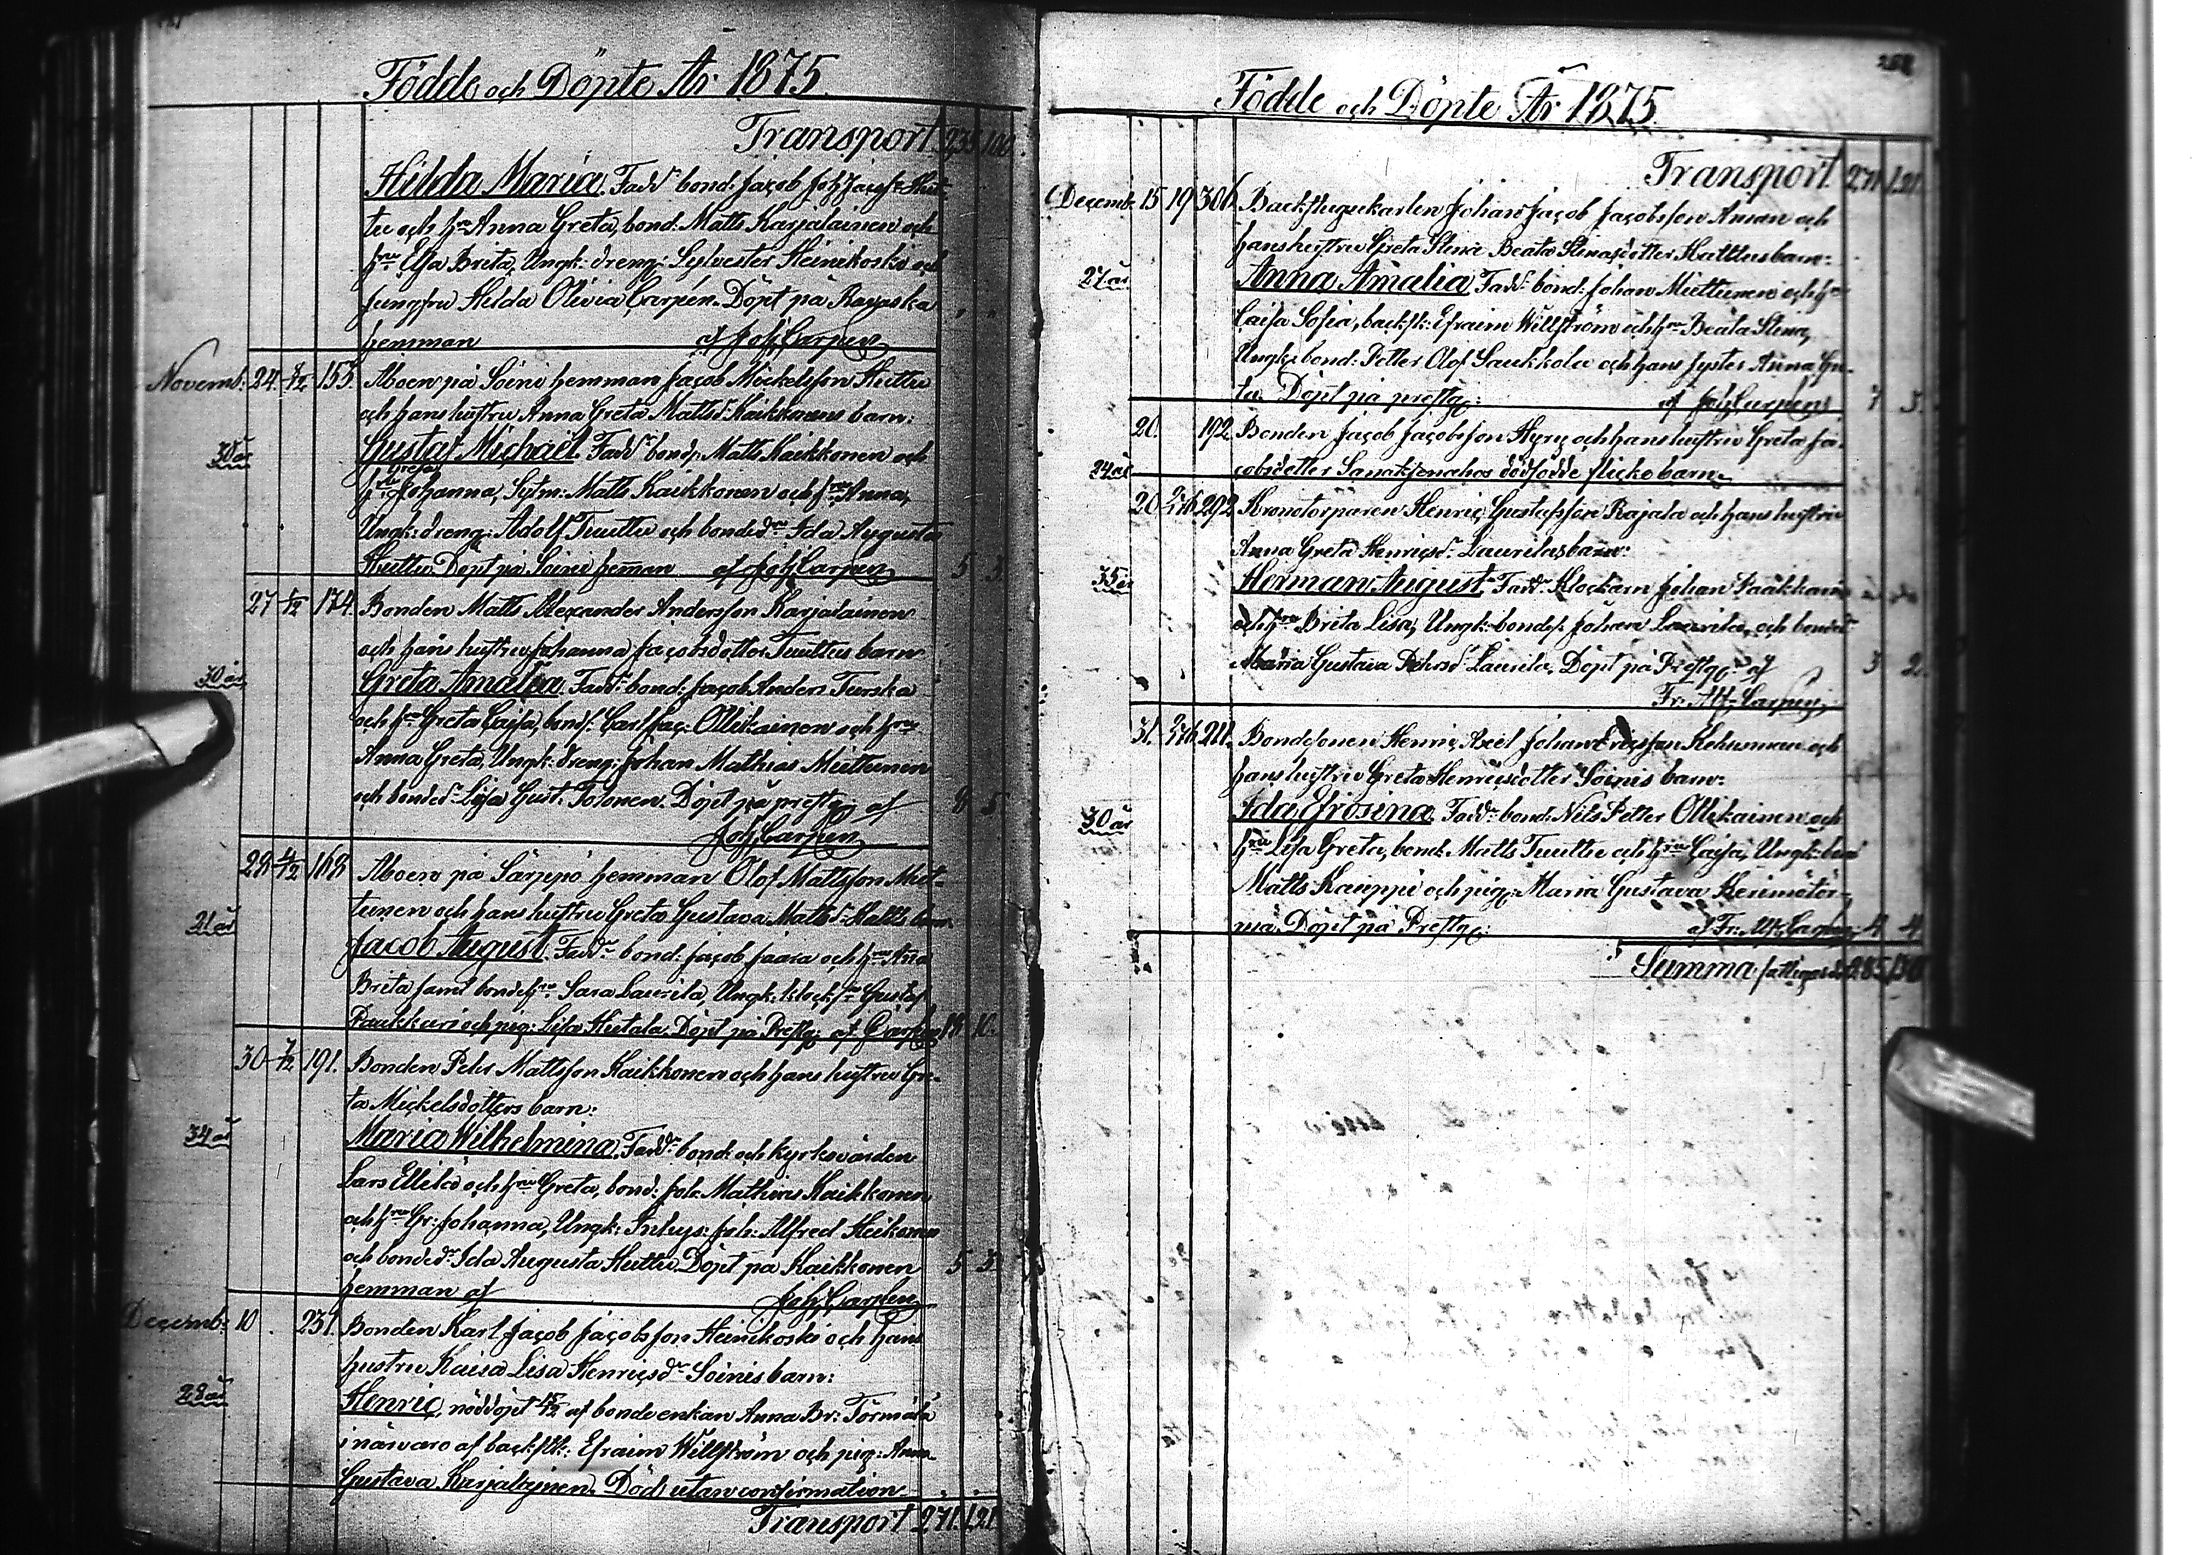 Födde och Döpte År 1875.
Transport 235 100
Hilda Maria. Fadd. bond: Jacob Joh Jacobss
tu och hu Anna Greta, bond: Matts Karjalainen och
hru Elsa Brita, Ungk: dreng: Sylvester Heinikoski och
Jungfru Hilda Olivia Carpén. Döpt på Ravaska
hemman af Joh Carpén
Novemb: 24 8/12 155 Åboen på Soini hemman Jacob Mickelsson Huttu
och hans hustru Anna Greta Mattsd. Kaikkonens barn:
30 år Gustaf Michael. Fadd. bond: Matts Kaikkonen och
hru Greta Johanna, Sytm: Matts Kaikkonen och hru Anna,
Ungk: dreng: Adolf Tuuttu och bonded. Ida Augusta
Huttu. Döpt på Soini hemman af Joh Carpén 5 3.
27 /12 174. Bonden Matts Alexander Andersson Karjalainen
och hans hustru Johanna Jacobsdotter Tuuttus barn
30 år Greta Amalia. Fadd. bond: Jacob Anders Turska
och hu Greta Caisa, bonds. Carl Jac: Ollikainen och hru
Anna Greta, Ungk: dreng: Johan Mathias Miettunen
och bonded. Lisa Gust. Tolonen. Döpt på prestg. af 8 5.
Joh Carpén
28 4/12 168 Åboen på Särppö hemman Olof Mattsson Miet-
tunen och hans hustru Greta Gustava Mattsd. Hattts barn
21 år Jacob August. Fadd. bond: Jacob Jaara och hru Ana
Brita samt bondehru Sara Laurila, Ungk: klock.s. Gustaf
Paukkeri och pig: Lisa Hietala. Döpt på Prestg. af Carpén 18 10.
30 7/12 191. Bonden Pehr Mattsson Kaikkonen och hans hustru Gre-
ta Mickelsdotters barn:
34 år Maria Wilhelmina. Fadd. bond: och kyrkovärden
Lars Ellilä och hru Greta, bond: Joh: Mathias Kaikkonen
och hru Gr: Johanna, Ungk: Inhys: Joh: Alfred Heikonen
och bonded. Ida Augusta Huttu. Döpt på Kaikkonen 5 3
hemman af Joh Carpén
Decemb: 10 . 231. Bonden Karl Jacob Jacobsson Heinikoski och hans
hustru Kaisa Lisa Henricsdr Soinis barn:
28 år Henric, nöddöpt af bonde enkan Anna Br: Törmälä
i närwaro af backst: Efraim Willström och pig: Anna
Gustava Karjalainen. Död utan confirmation
Transport 271. 121.
268
Födde och Döpte År 1875.
Transport 271. 121.
Decemb: 15 19 306. Backstugukarlen Johan Jacob Jacobsson Aman och
hans hustru Greta Stina Beata Stinasdotter Hattus barn:
27 år Anna Amalia. Fadd. bond: Johan Miettunen och hru
Caisa Sofia, backst: Efraim Willström och hru Beata Stina,
Ungk: bond: Petter Olof Saukkola och hans syster Anna Gre-
ta. Döpt på prestg: af Joh Carpén 7 3.
20. 192. Bonden Jacob Jacobsson Hyry och hans hustru Greta Ja-
24 år cobsdotter Sanaksenahos dödfödde flickobarn
20 27/6 292 Kronotorparen Henric Gustafsson Rajala och hans hustru
Anna Greta Henricsd. Laurilas barn:
35 år Herman August. Fadd. Klockarn Johan Pääkkönen
och hru Brita Lisa, Ungk: bonds. Johan Laurila, och bonded.
Maria Gustava Pehrsd. Laurila. Döpt på Prestg. af 3 2.
Fr: Alf. Carpén
31. 27/6 211. Bondesonen Henric Axel Johan Ericsson Kehusmaa och
hans hustru Greta Henricsdotter Soinis barn:
30 år Ida Efrosina. Fadd. bond: Nils Petter Ollikainen och
hru Lisa Greta, bond: Matts Tuuttu och hru Caisa, Ungk: bond
Matts Kauppi och pig: Maria Gustava Kerimötör-
mä. Döpt på Prestg: af Fr: Alf. Carpén 4 4
Summa fattigard 285 130